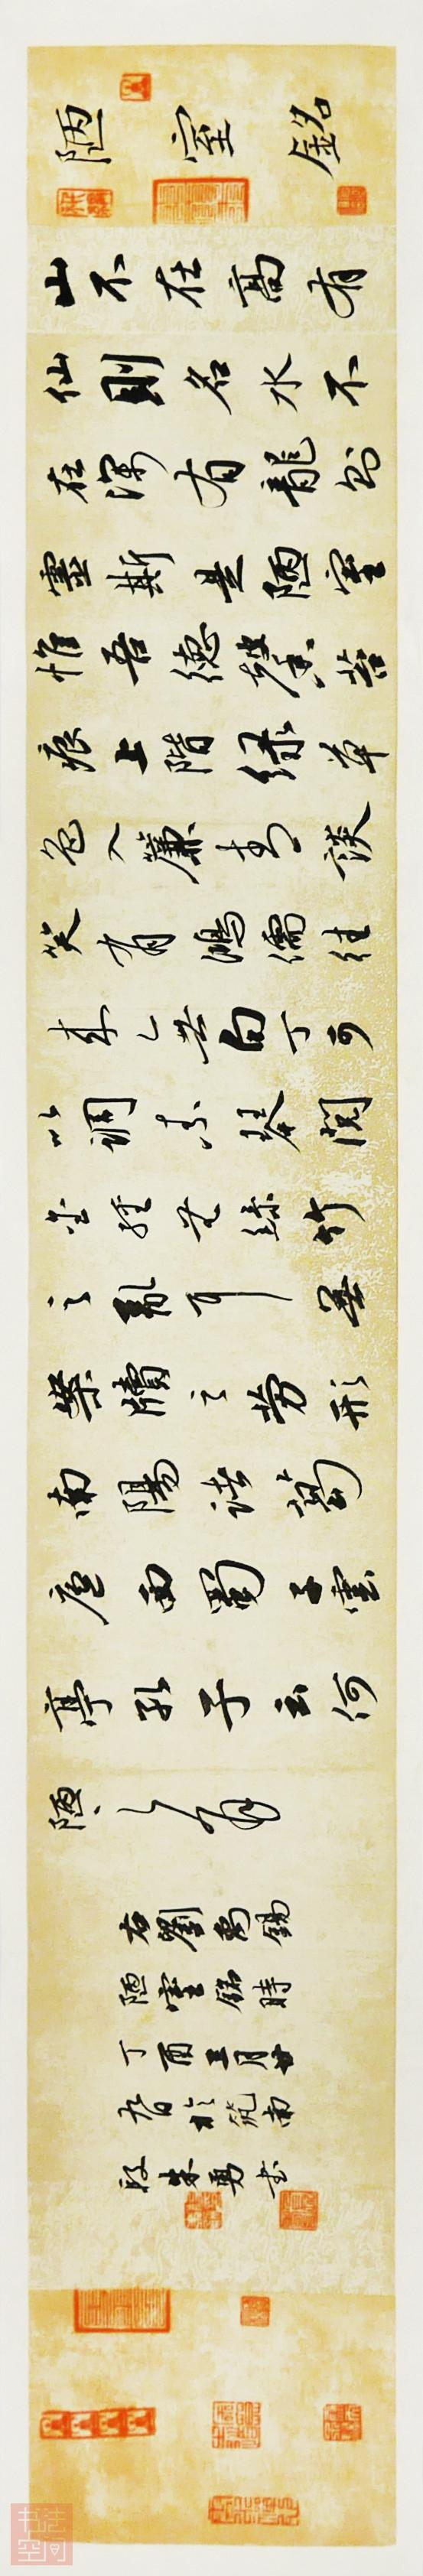 陋室銘
山不在高有
仙則名水不
在深有龍則
靈斯是陋室
惟吾德馨苔
痕上階緑草
色入簾青談
笑有鴻儒往
来無白丁可
以調素琴閲
金經無絲竹
之亂耳無
案牘之勞形
南陽諸葛
廬西蜀子雲
亭孔子云何
陋之有
右劉禹錫
陋室銘時
丁酉三月廿
於筑南
段朱勇書
书法
空间